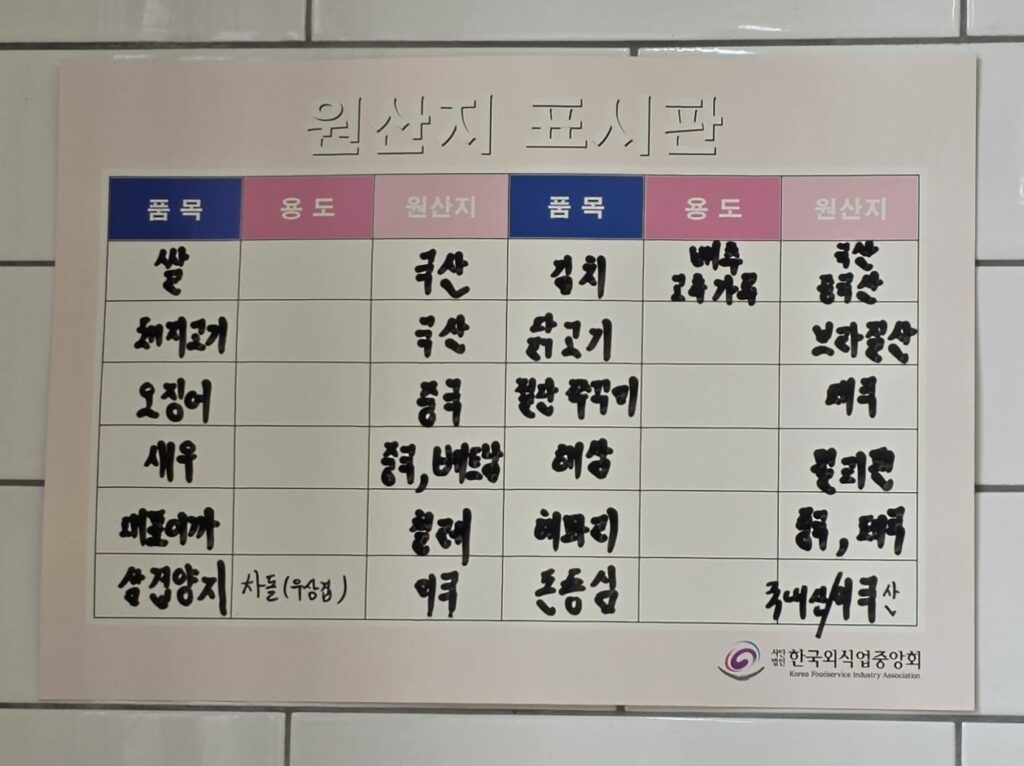 원산지 표시판
품목 용도 원산지 품목 용도 원산지
쌀 국산 김치 배추 국산
고추가루 중국산
돼지고기 국산 닭고기 브라질산
오징어 중국 절단 쭈꾸미 태국
새우 중국, 베트남 해삼 필리핀
대포이까 칠레 해파리 중국, 태국
삼겹양지 차돌(우삼겹) 미국 돈등심 국내산/미국산
사단법인 한국외식업중앙회
Korea Foodservice Industry Association